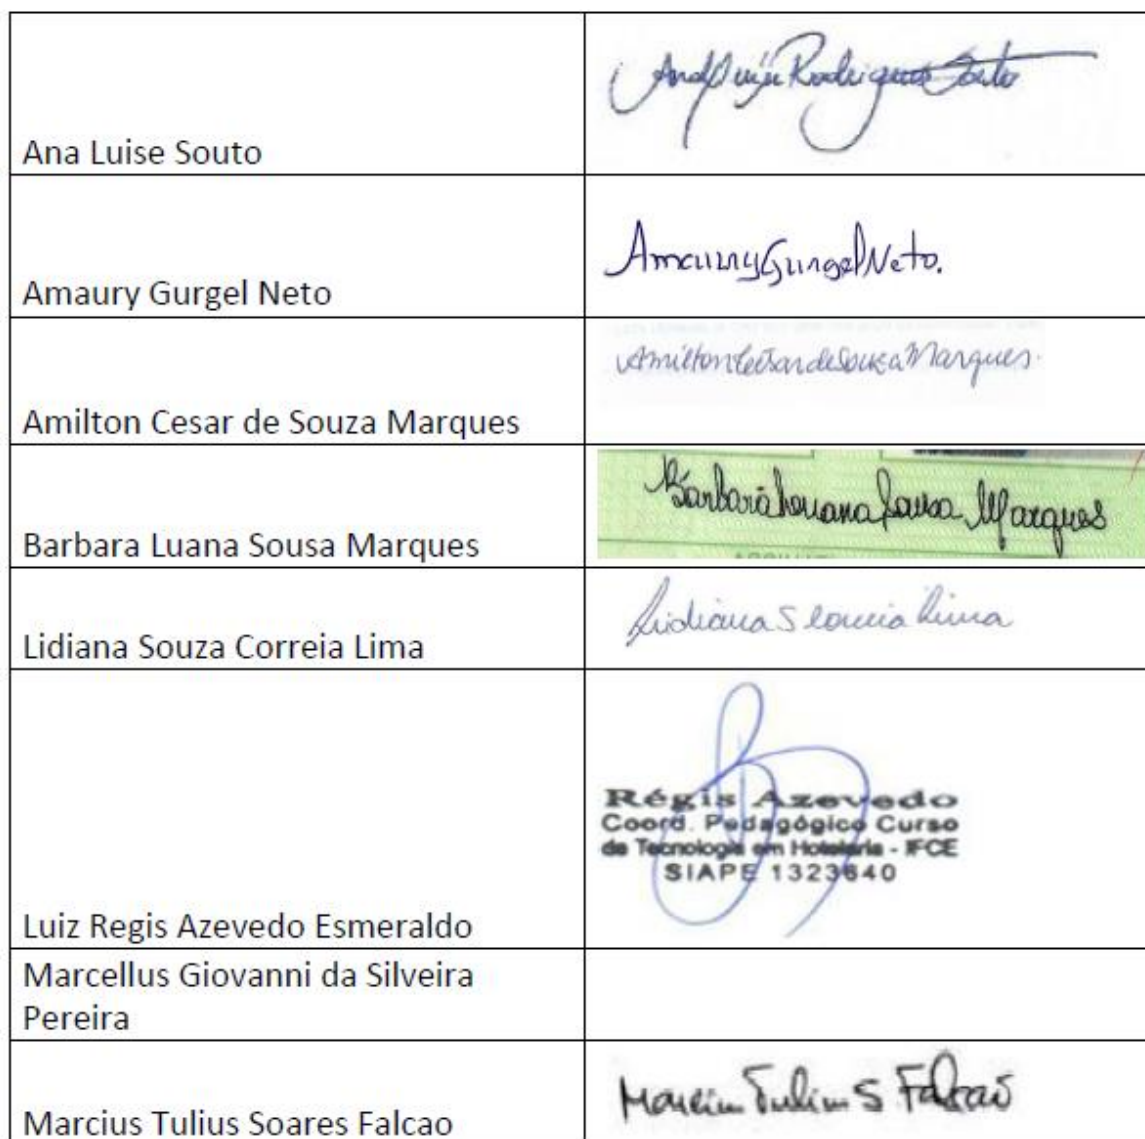 Ana Luise Souto
Ana Luiza Rodrigues Souto
Amaury Gurgel Neto
Amaury Gurgel Neto.
Amilton Cesar de Souza Marques
Amilton Cesar de Souza Marques.
Barbara Luana Sousa Marques
Barbara Luana Sousa Marques
Lidiana Souza Correia Lima
Lidiana S Correia Lima
Luiz Regis Azevedo Esmeraldo
Régis Azevedo
Coord. Pedagógico Curso
de Tecnologia em Hotelaria - IFCE
SIAPE 1323640
Marcellus Giovanni da Silveira
Pereira
Marcius Tulius Soares Falcao
Marcius Tulius S Falcao